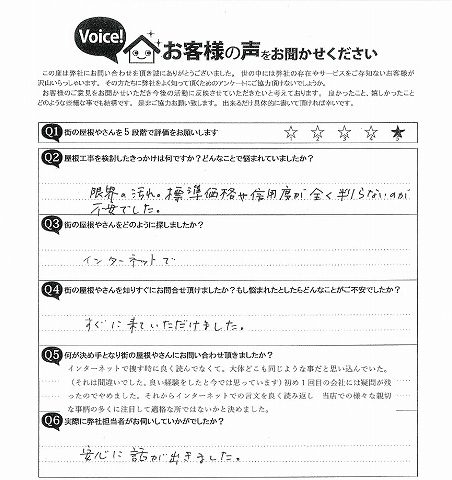 Voice!
お客様の声をお聞かせください
この度は弊社にお問い合わせを頂き誠にありがとうございました。世の中には弊社の存在やサービスをご存知ないお客様が
沢山いらっしゃいます。その方たちに弊社をよく知って頂くためのアンケートにご協力頂けないでしょうか。
お客様のご意見をお聞かせいただき今後の活動に反映させていただきたいと考えております。良かったこと、嬉しかったこと
どのような些細な事でも結構です。是非ご協力お願い致します。出来るだけ具体的に書いて頂ければ幸いです。
Q1 街の屋根やさんを5段階で評価をお願いします ☆ ☆ ☆ ☆ ★
1 2 3 4 5
Q2 屋根工事を検討したきっかけは何ですか?どんなことで悩まれていましたか?
限界の汚れ。標準価格や信用度が全く判らないのが
不安でした。
Q3 街の屋根やさんをどのように探しましたか?
インターネットで
Q4 街の屋根やさんを知りすぐにお問合せ頂けましたか?もし悩まれたとしたらどんなことがご不安でしたか?
すぐに来ていただけました。
Q5 何が決め手となり街の屋根やさんにお問い合わせ頂きましたか?
インターネットで捜す時に良く読んでなくて、大体どこも同じような事だと思い込んでいた。
(それは間違いでした。良い経験をしたと今では思っています)初め1回目の会社には疑問が残
ったのでやめました。それからインターネットでの言文を良く読み返し 当店での様々な親切
な事柄の多くに注目して適格な所ではないかと決めました。
Q6 実際に弊社担当者がお伺いしていかがでしたか?
安心に話が出きました。